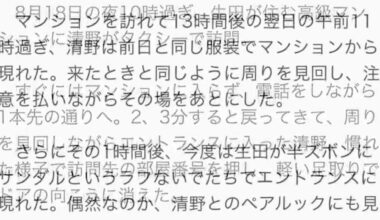 8月18日の夜10時過ぎ、生田が住む高級マン
ションに清野がタクシーで訪問。
すぐにはマンションに入らず、電話をしながら
1本先の通りへ。2、3分すると戻ってきて、周り
を見回しながらエントランスに入った清野。慣れ
た様子で訪問先の部屋番号を押し、軽い足取りで
ドアの向こうに消えた。
マンションを訪れて13時間後の翌日の午前11
時過ぎ、清野は前日と同じ服装でマンションから
現れた。来たときと同じように周りを見回し、注
意を払いながらその場をあとにした。
さらにその1時間後、今度は生田が半ズボンに
サンダルというラフないでたちでエントランスに
現れた。偶然なのか、清野とのペアルックにも見